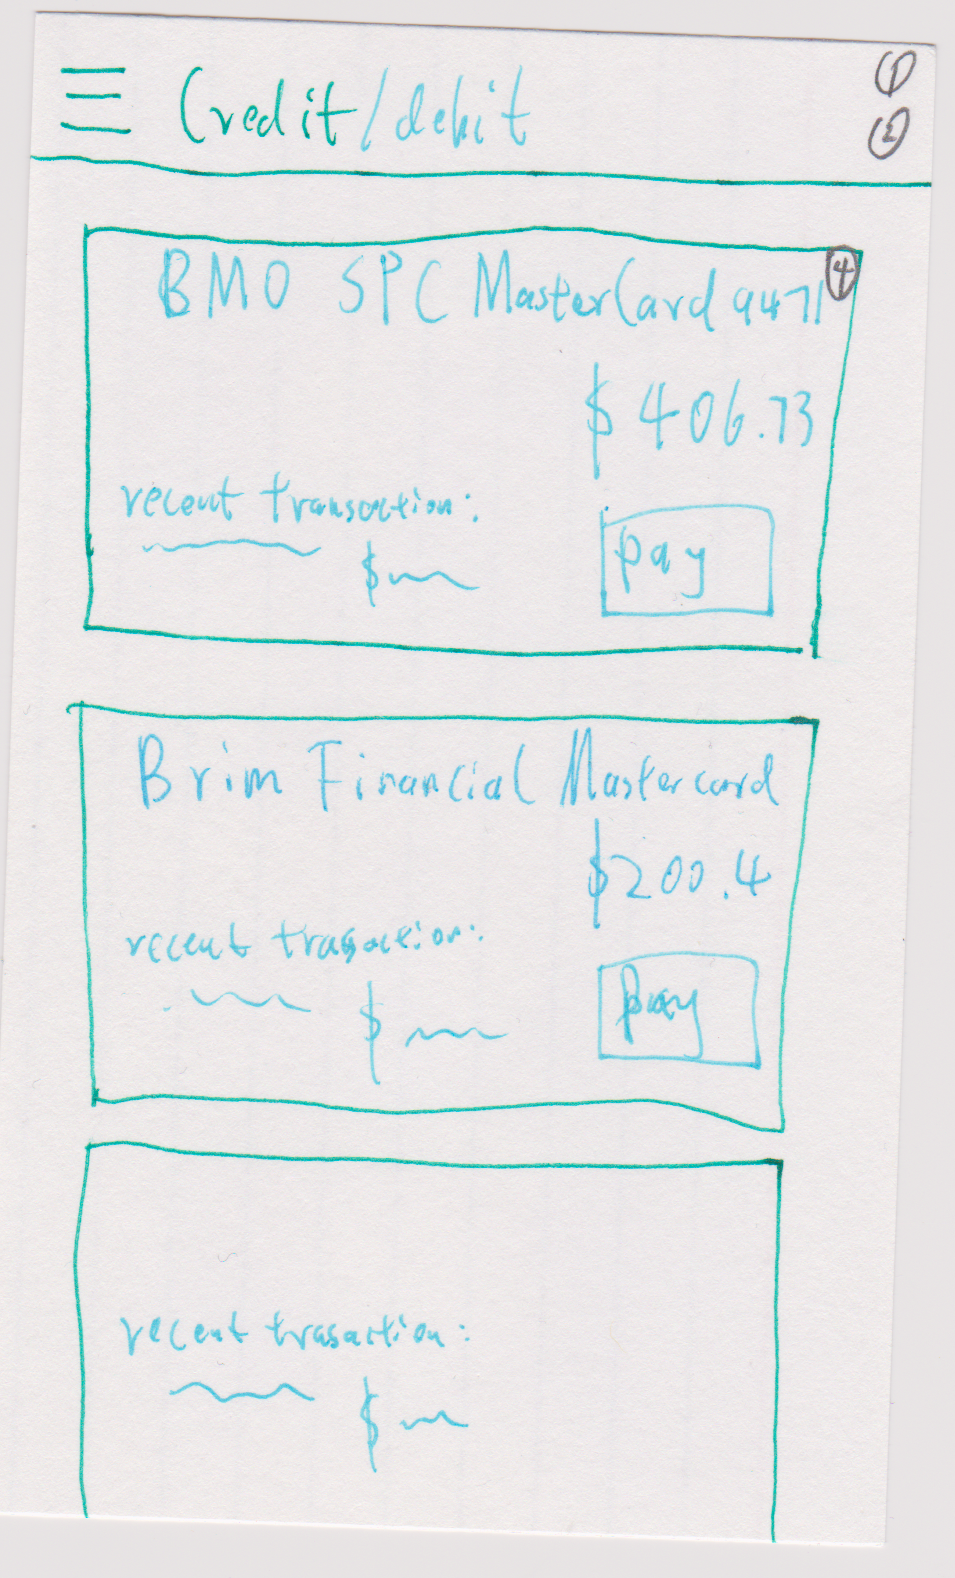 Credit/debit
1
2
BMO SPC MasterCard 9471
4
$406.73
recent transaction:
$
pay
Brim Financial Mastercard
$200.4
recent trasaction:
$
pay
recent trasaction:
$